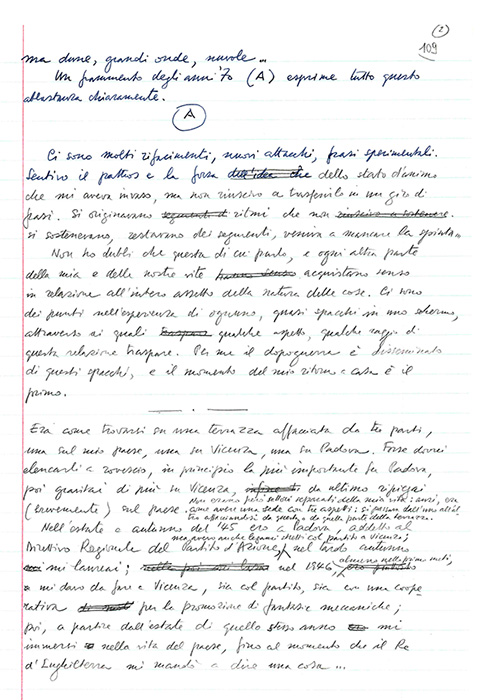 (2)
109
ma dune, grandi onde, nuvole...
Un frammento degli anni '70 (A) esprime tutto questo
abbastanza chiaramente.
A
Ci sono molti rifacimenti, nuovi attacchi, frasi sperimentali.
Sentivo il pathos e la forza dell'idea che dello stato d'animo
che mi aveva invaso, ma non riuscivo a trasferirlo in un giro di
frasi. Si originavano segmenti di ritmi che non riuscivo a sostenere.
si sostenevano, restavano dei segmenti, veniva a mancare la spinta...
Non ho dubbi che questa di cui parlo, e ogni altra parte
della mia e delle nostre vite hanno senso acquistano senso
in relazione all'intero assetto della natura delle cose. Ci sono
dei punti nell'esperienza di ognuno, quasi spacchi in uno schermo,
attraverso ai quali qualche aspetto, qualche raggio di
questa relazione traspare. Per me il dopoguerra è disseminato
di questi spacchi, e il momento del mio ritorno a casa è il
primo.
Era come trovarsi su una terrazza affacciata da tre parti,
una sul mio paese, una su Vicenza, una su Padova. Forse dovrei
elencarli a rovescio, in principio la più importante fu Padova,
poi gravitai di più su Vicenza, da ultimo ripiegai
(brevemente) sul paese. Non erano però settori separati della mia vita: anzi, era
come avere una sede con tre aspetti: si passava dall'uno all'altro
affacciandosi da questa o da quella parte della terrazza.
Nell'estate e autunno del '45 ero a Padova, addetto al
ma avevo anche legami stretti col partito a Vicenza;
Direttivo Regionale del Partito d'Azione, nel tardo autunno
mi laureai; nella poi nel 1946, almeno nella prima metà,
a mi davo da fare a Vicenza, sia col partito, sia con una coope
rativa per la promozione di fantasie meccaniche;
poi, a partire dall'estate di quello stesso anno mi
immersi nella vita del paese, fino al momento che il Re
d'Inghilterra mi mandò a dire una cosa...